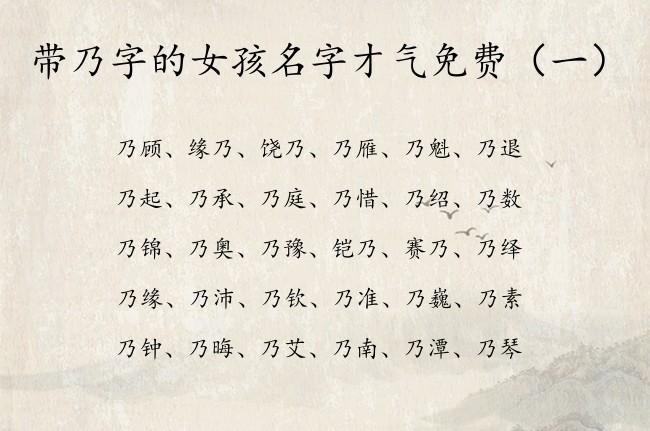 带乃字的女孩名字才气免费（一）
乃顾、缘乃、饶乃、乃雁、乃魁、乃退
乃起、乃承、乃庭、乃惜、乃绍、乃数
乃锦、乃奥、乃豫、铠乃、赛乃、乃绎
乃缘、乃沛、乃钦、乃准、乃巍、乃素
乃钟、乃晦、乃艾、乃南、乃潭、乃琴